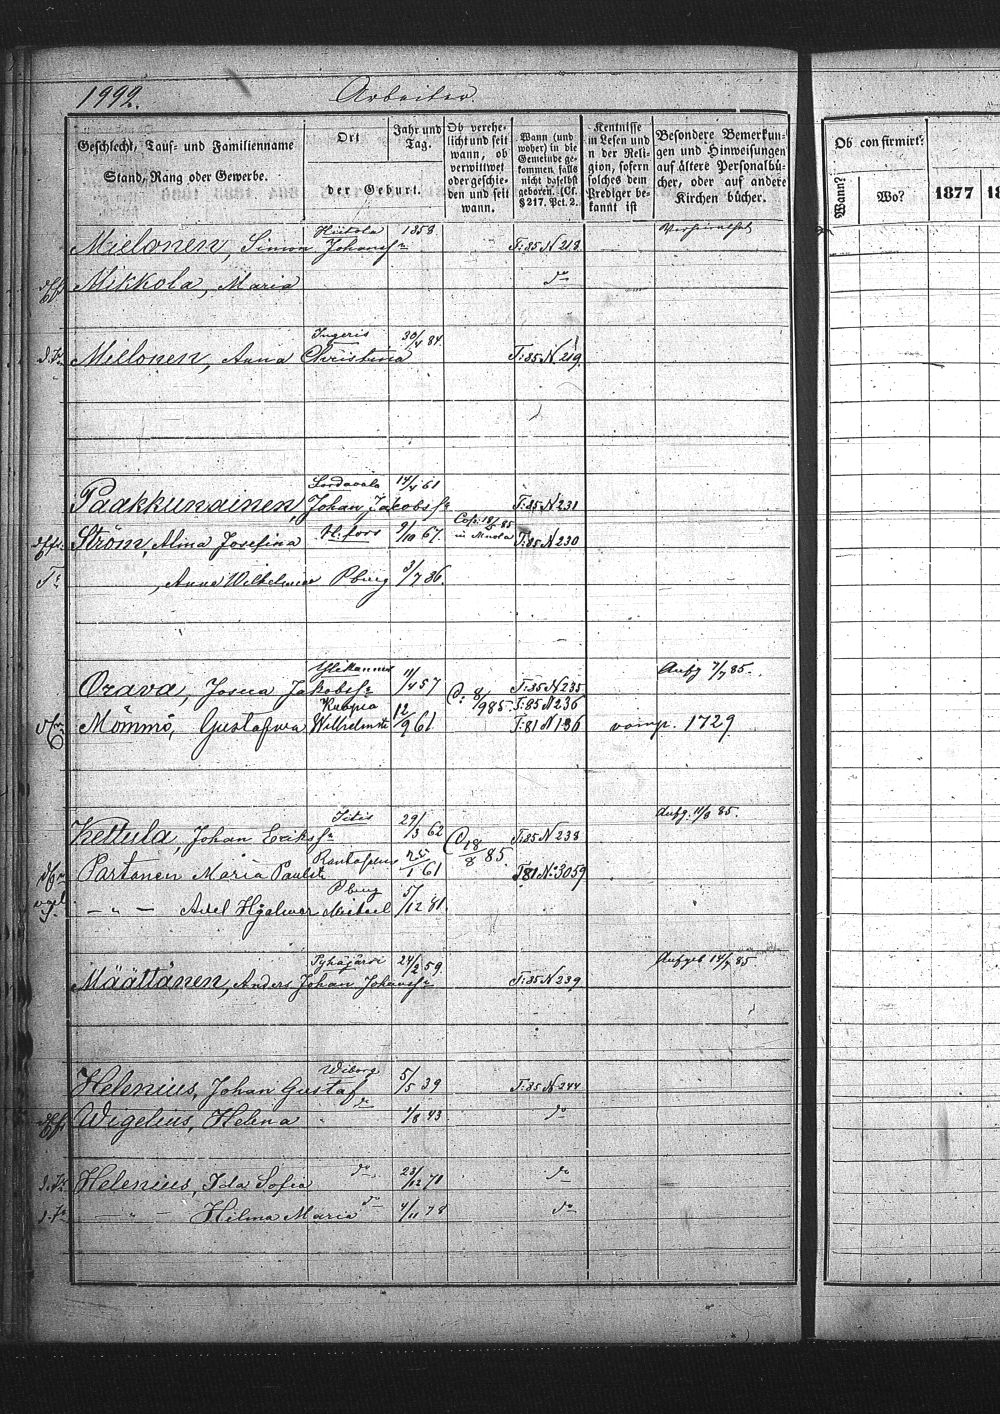 1992. Arbeiter.
Geschlecht, Tauf- und Familienname
Stand, Rang oder Gewerbe.
Ort
der Geburt.
Jahr und
Tag.
Ob verehe-
licht und seit
wann, ob
verwittwet
oder geschie-
den und seit
wann.
Wann (und
woher) in die
Gemeinde ge-
kommen, falls
nicht daselbst
geboren. (Cf.
§ 217. Pct. 2.)
Kentnisse
in Lesen und
n der Reli-
gion, sofern
solches dem
Prediger be-
kannt ist
Besondere Bemerkun-
gen und Hinweisungen
auf ältere Personalbü-
cher, oder auf andere
Kirchen bücher.
Ob confirmirt?
Wann?
Wo?
1877
Hiitola 1858
Mielonen, Simon Johanssn T: 85 N 218
Mikkola, Maria do
Ingeris 30/4 84.
Mielonen, Anna Christina T: 85 N 219.
Sordavala 14/4 61
Paakkunainen, Johan Jakobssn T: 85 N 231
Cop: 18/5 85
Ström, Alma Josefina H:fors 9/10 67. T: 85 N 230
Tr , Anna Wilhelmina Pburg 3/7 86.
11/4 57 Aufg 7/7 85.
Orava, Josua Jakobssn C: 8/9 85. T: 85 N 235
12/9 61 T: 85 N 236
Mömmö, Gustafwa Wilhelmsti T: 81 N 136 1729
Iitis 29/3 62 Aufg. 11/8 85.
Kettula, Johan Erikssn C 18/8 85. T: 85 N 238
25/1 61
Partanen Maria Paulst T 81 No 3059
Pburg 5/12 81.
— " — Axel Hjalmar Mickael
Pyhäjärvi 24/2 59. Aufgeb 14/7 85
Määttänen, Anders Johan Johanssn T: 85 N 239
Wiborg 5/5 39
Helenius, Johan Gustaf T: 85 N 244
Wigelius, Helena " 1/8 43 do
Helenius, Ida Sofia do 23/12 70 do
— " — Hilma Maria do 4/11 78 do